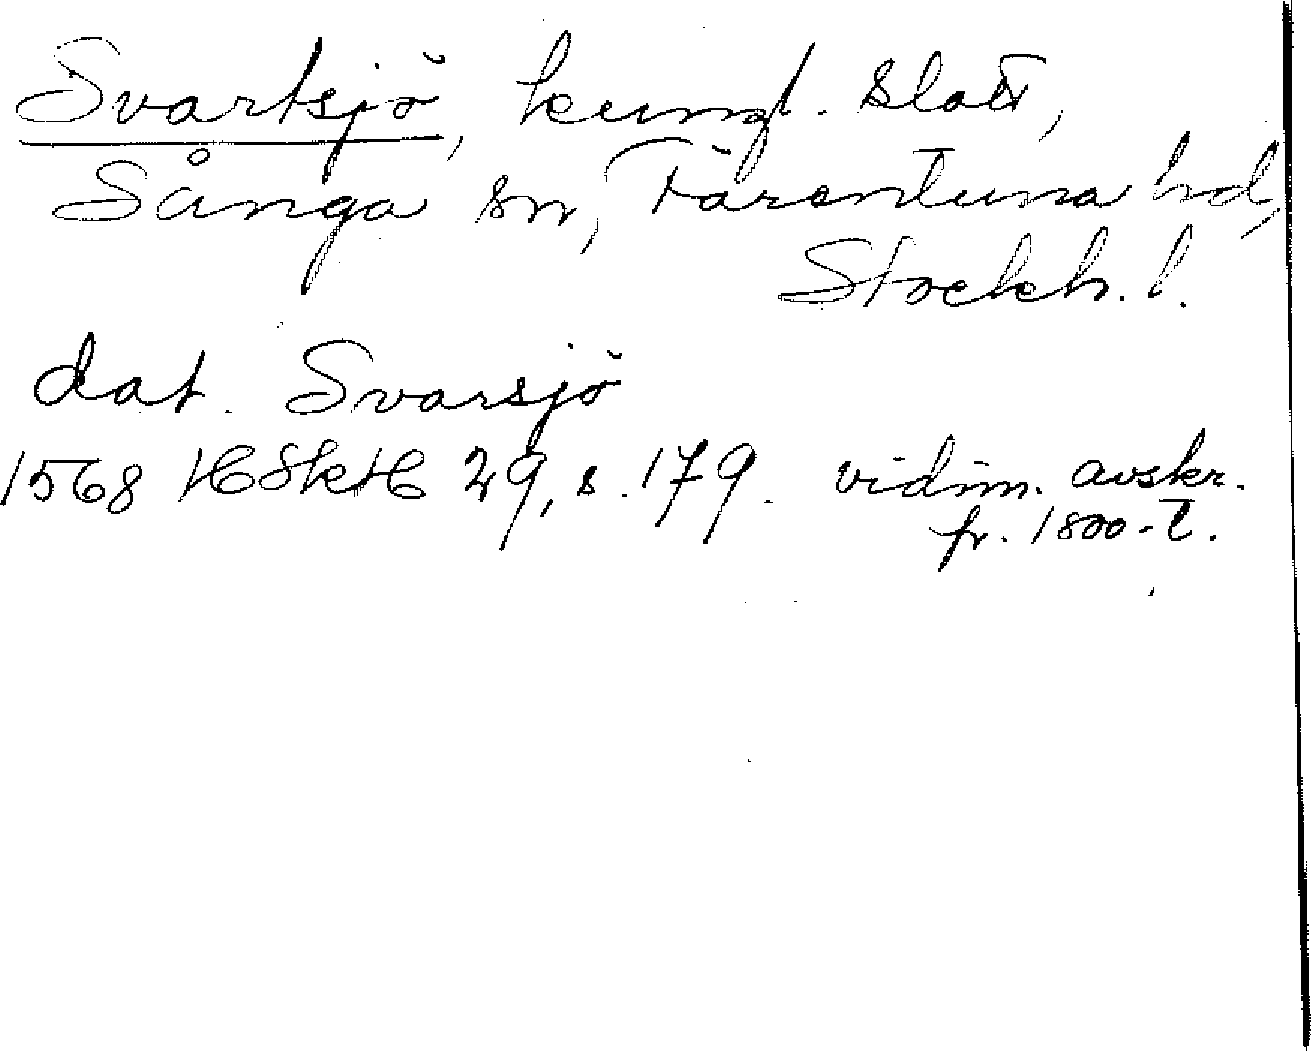 Svartsjö, kungl. slott,
Sånga sn, Färentuna hd,
Stockh. l.
dat. Svarsjö
1568 HSkH 29, s. 179. vidim. avskr.
fr. 1800-t.